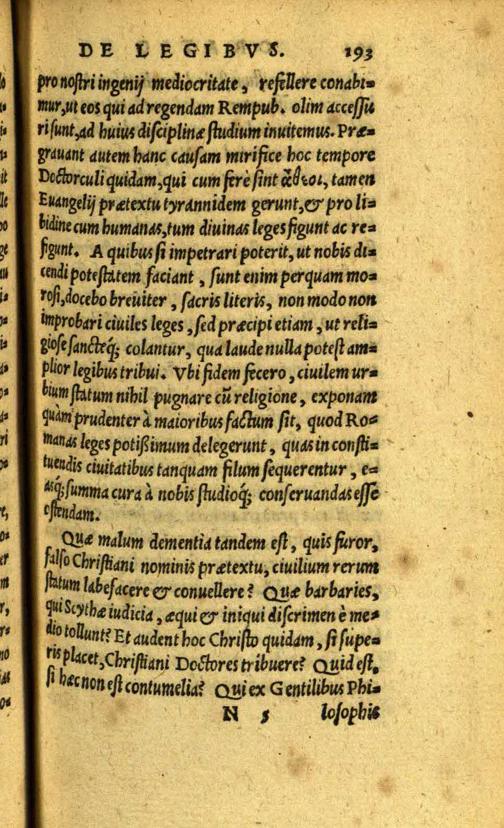 DE LEGIBVS. 193
pro nostri ingenij mediocritate, refellere conabi=
mur, ut eos qui ad regendam Rempub. olim accessu
ri sunt, ad huius disciplinæ studium inuitemus. Præ=
grauant autem hanc causam mirifice hoc tempore
Doctorculi quidam, qui cum ferè sint ἄθεοι, tamen
Euangelij prætextu tyrannidem gerunt, & pro li=
bidine cum humanas, tum diuinas leges figunt ac re=
figunt. A quibus si impetrari poterit, ut nobis di=
cendi potestatem faciant, sunt enim perquam mo=
rosi, docebo breuiter, sacris literis, non modo non
improbari ciuiles leges, sed præcipi etiam, ut reli=
giose sancteq́; colantur, qua laude nulla potest am=
plior legibus tribui. Vbi fidem fecero, ciuilem ur=
bium statum nihil pugnare cū religione, exponam
quàm prudenter à maioribus factum sit, quod Ro=
manas leges potißimum delegerunt, quas in consti=
tuendis ciuitatibus tanquam filum sequerentur, e=
asq́; summa cura à nobis studioq́; conseruandas esse
ostendam.
Quæ malum dementia tandem est, quis furor,
falso Christiani nominis prætextu, ciuilium rerum
statum labefacere & conuellere? Quæ barbaries,
qui Scythæ iudicia, æqui et iniqui discrimen è me=
dio tollunt? Et audent hoc Christo quidam, si supe=
ris placet, Christiani Doctores tribuere? Quid est,
si hæc non est contumelia? Qui ex Gentilibus Phi=
N 5 losophis